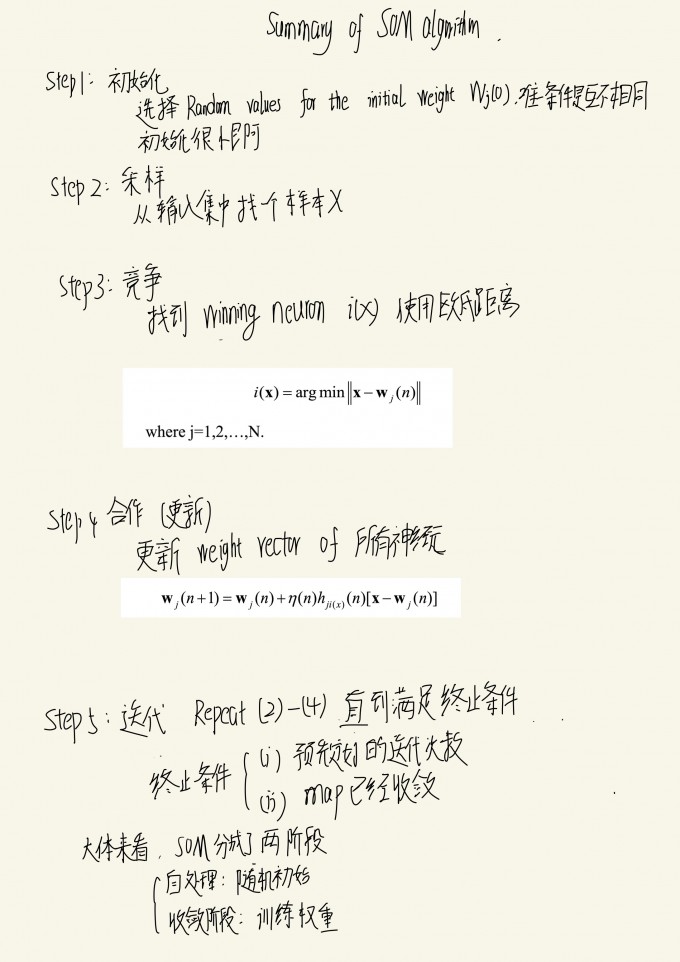 Summary of SOM algorithm.
Step1: 初始化
选择 Random values for the initial weight Wj(0). 唯一条件是互不相同
初始化很随机
Step 2: 采样
从输入集中找个样本X
Step3: 竞争
找到 winning neuron i(x) 使用欧氏距离
i(x) = arg min ‖x − w_j(n)‖
where j=1,2,…,N.
Step 4 合作 (更新)
更新 weight vector of 所有神经元
w_j(n+1) = w_j(n) + η(n)h_{ji(x)}(n)[x − w_j(n)]
Step 5: 迭代 Repeat (2)-(4) 直到满足终止条件
终止条件 { (i) 预先定好的迭代次数
(ii) map已经收敛
大体来看, SOM分成了两阶段
{ 自处理: 随机初始
收敛阶段: 训练权重